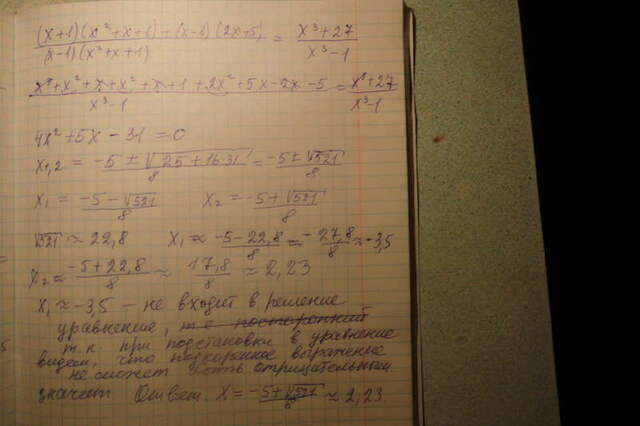 (x+1)(x²+x+1)+(x-1)(2x+5) / (x-1)(x²+x+1) = x³+27 / x³-1
x³+x²+x+x²+x+1+2x²+5x-2x-5 / x³-1 = x³+27 / x³-1
4x²+5x-31=0
x1,2 = -5±√25+16·31 / 8 = -5±√521 / 8
x1 = -5-√521 / 8 x2 = -5+√521 / 8
√521 ≈ 22,8 x1 ≈ -5-22,8 / 8 ≈ -27,8 / 8 ≈ -3,5
x2 ≈ -5+22,8 / 8 ≈ 17,8 / 8 ≈ 2,23
x1 ≈ -3,5 - не входит в решение
уравнение, т.е. посторонний
т.к. при подстановки в уравнение
видем, что подкоринное выражение
не сможет быть отрицательным.
значит Ответ: x = -5+√521 / 8 ≈ 2,23